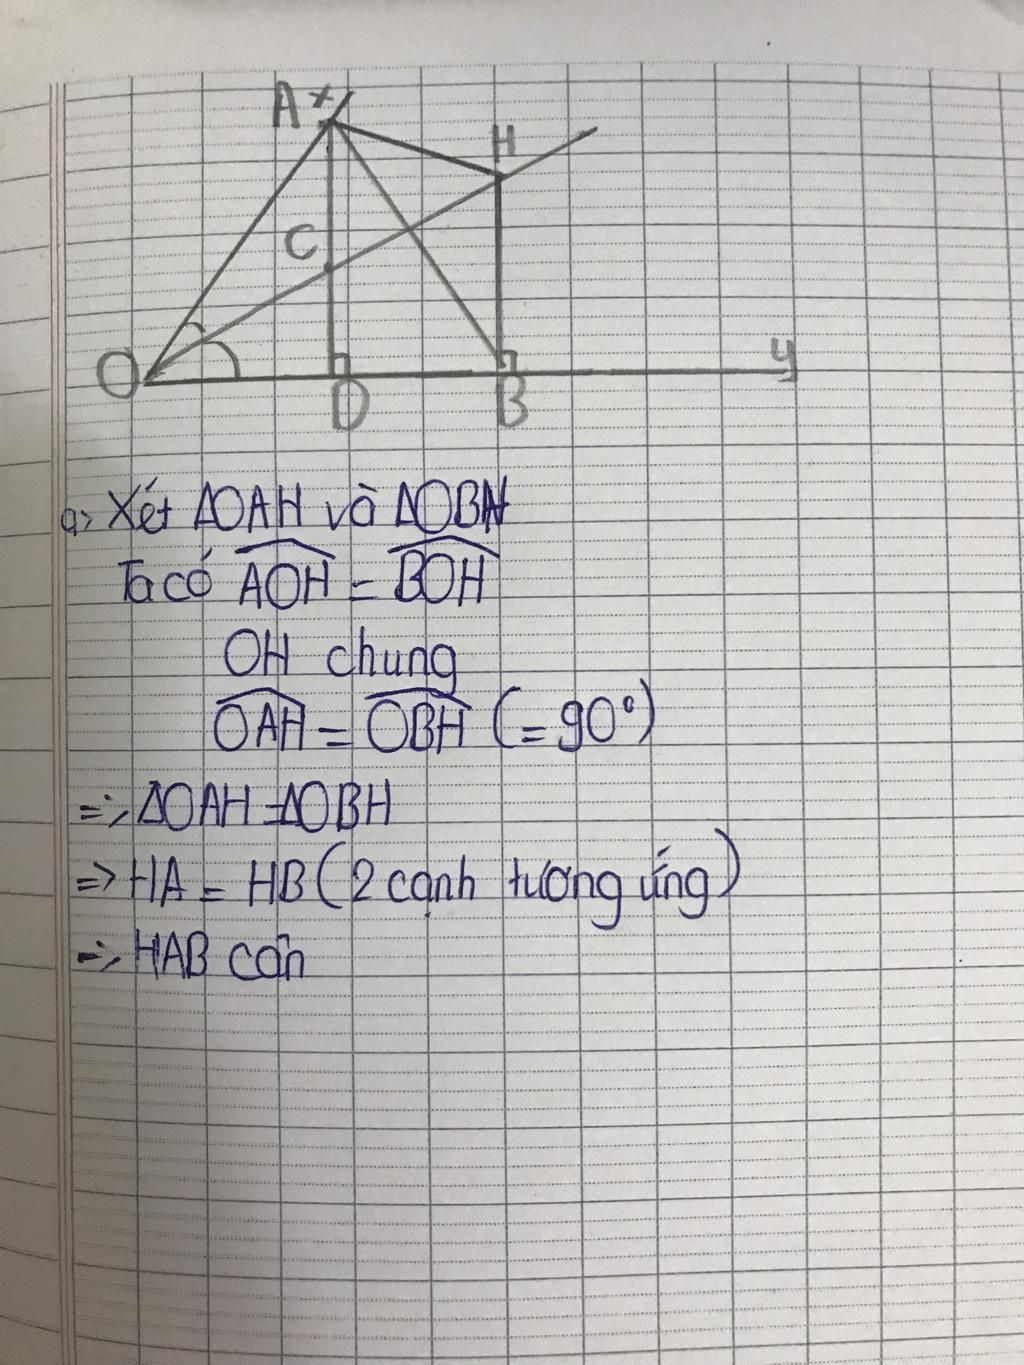 A x
H
C
O
D
B
y
a, Xét ΔOAH và ΔOBH
Ta có AOH = BOH
OH chung
OAH = OBH (= 90°)
=> ΔOAH = ΔOBH
=> HA = HB (2 cạnh tương ứng)
=> HAB cân